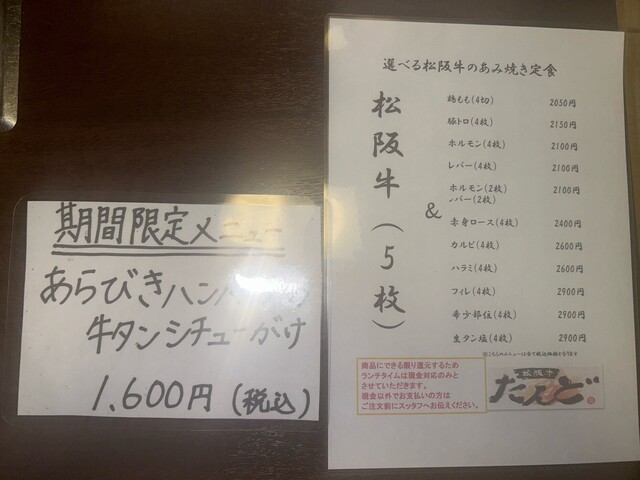 期間限定メニュー
あらびきハン
牛タンシチューがけ
1,600円 (税込)
選べる松阪牛のあみ焼き定食
松阪牛(5枚)
&
鶏もも(4切) 2050円
豚トロ(4枚) 2150円
ホルモン(4枚) 2100円
レバー(4枚) 2100円
ホルモン(2枚) 2100円
レバー(2枚)
赤身ロース(4枚) 2400円
カルビ(4枚) 2600円
ハラミ(4枚) 2600円
フィレ(4枚) 2900円
希少部位(4枚) 2900円
生タン塩(4枚) 2900円
※こちらのメニューは全て税込価格となります
商品にできる限り還元するため
ランチタイムは現金対応のみと
させていただきます。
現金以外でお支払いの方は
ご注文前にスッタフへお伝えください。
松阪牛
たんど